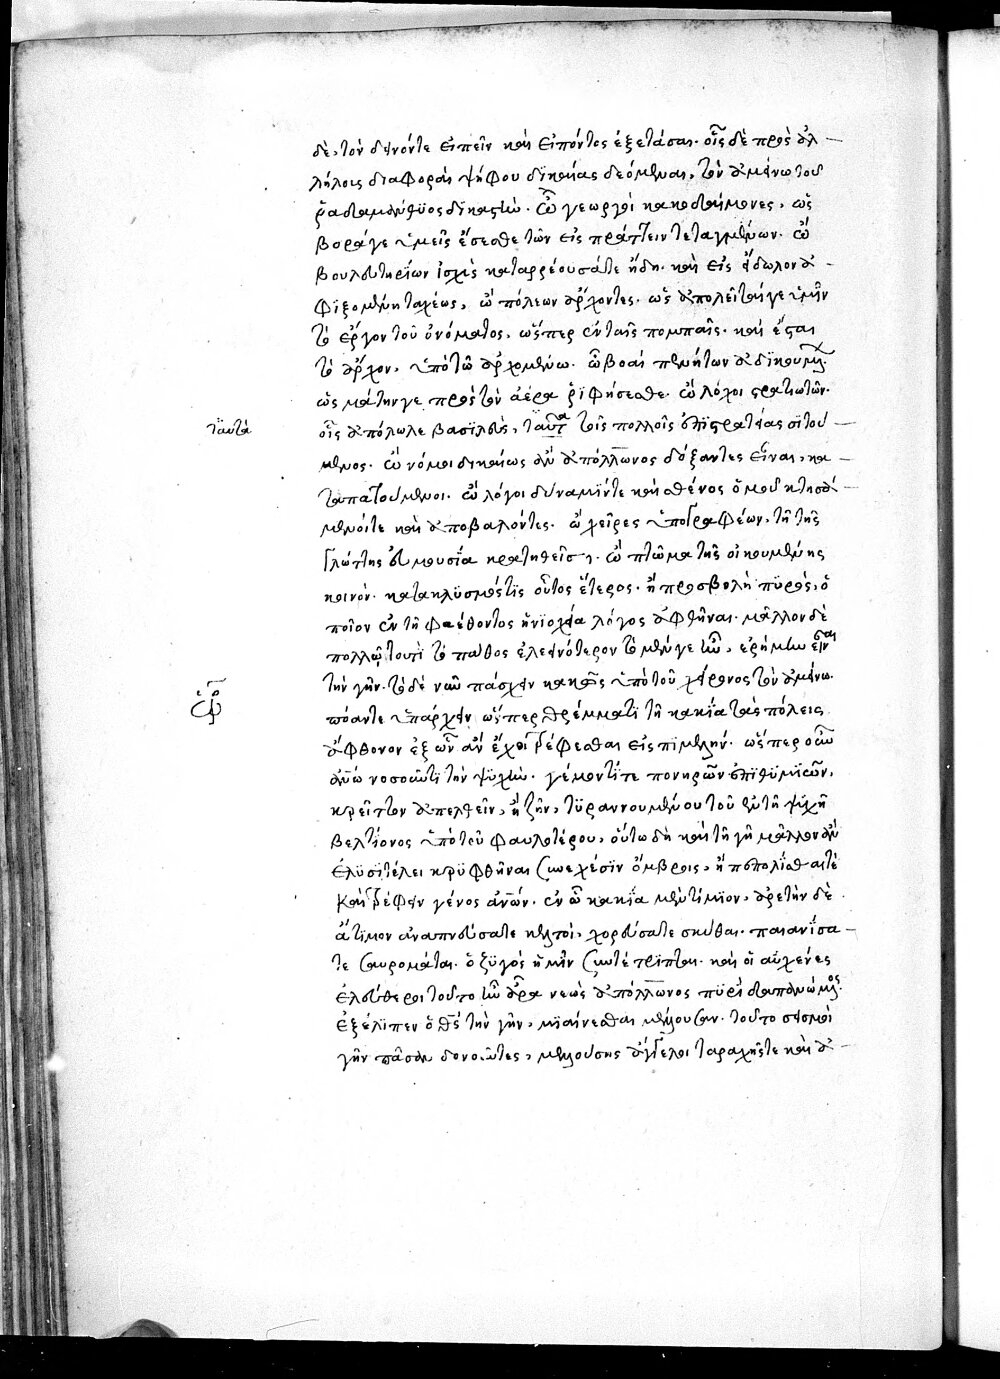 δὲ, τὸν δεινόντε εἰπεῖν καὶ εἰπόντος ἐξετάσαι. οἷς δὲ πρὸς ἀλ –
λήλοις διαφοραὶ ψήφου δικαίας δεόμεναι, τὸν ἀμείνω τοῦ
ῥαδαμάνθυος δικαστήν. ὦ γεωργοὶ κακοδαίμονες, ὡς
βορά γε ὑμεῖς ἔσεσθε τῶν εἰσπράττειν τεταγμένων. ὦ
βουλευτηρίων ἰσχὺς καταρρέουσά τε ἤδη. καὶ εἰς εἴδωλον ἀ –
φιξομένη ταχέως, ὦ πόλεων ἄρχοντες. ὡς ἀπολεῖταί γε ὑμῖν
τὸ ἔργον τοῦ ὀνόματος, ὥσπερ ἐν ταῖς πομπαῖς. καὶ ἔσται
τὸ ἄρχον, ὑπὸ τῷ ἀρχομένῳ. ὦ βοαὶ πενήτων ἀδικουμ
ὡς μάτην γε πρὸς τὸν ἀέρα ῥιφήσεσθε. ὦ λόχοι στρατιωτῶν.
ταῦτα
οἷς ἀπόλωλε βασιλεὺς, ταῦτα τοῖς πολλοῖς ἐπὶ στρατείας σιτού –
μενος. ὦ νόμοι δικαίως ἂν ἀπόλλωνος δόξαντες εἶναι, κα –
ταπατούμενοι. ὦ λόγοι δύναμίν τε καὶ σθένος ὁμοῦ κτησά –
μενοί τε καὶ ἀποβαλόντες. ὦ χεῖρες ὑπογραφέων, τῇ τῆς
γλώττης ῥύμῃ κρατηθεῖσαι. ὦ πτῶμα τῆς οἰκουμένης
κοινὸν. κατακλυσμός τις οὗτος ἕτερος. ἢ προσβολὴ πυρὸς, ὁ
ποῖον ἐν τῇ φαέθοντος ἡνιοχείᾳ λόγος ἀφθῆναι. μᾶλλον δὲ
πολλῷ τουτὶ τὸ πάθος ἐλεεινότερον τὸ μέν γε ἦν, ἔρημον εἶναι
τὴν γῆν. τὸ δὲ νῦν πάσχειν κακῶς ὑπὸ τοῦ χείρονος τὸν ἀμείνω.
πόαν τε ὑπάρχειν ὥσπερ θρέμματι τῇ κακίᾳ τὰς πόλεις
ἄφθονον ἐξ ὧν ἂν ἔχοι τρέφεσθαι εἰς πιμελήν. ὥσπερ οὖν
ἀνῷ νοσοῦντι τὴν ψυχὴν. γέμοντί τε πονηρῶν ἐπιθυμιῶν,
κρεῖττον ἀπελθεῖν, ἢ ζῆν, τυραννουμένου τοῦ ἐν τῇ ψυχῇ
βελτίονος ὑπὸ τοῦ φαυλοτέρου, οὕτω δὴ καὶ τῇ γῇ μᾶλλον ἂν
ἐλυσιτέλει κρυφθῆναι συνεχέσιν ὄμβροις, ἢ πεπολίσθαι τε
καὶ τρέφειν γένος ἀνῶν. ἐν ᾧ κακία μὲν τίμιον, ἀρετὴν δὲ
ἄτιμον ἀναπνεύσατε κελτοὶ, χορεύσατε σκύθαι. παιανίσα –
τε σαυρομάται. ὁ ζυγὸς ἡμῖν συντέτριπται. καὶ οἱ αὐχένες
ἐλεύθεροι τοῦτο ἦν ἄρα νεὼς ἀπόλλωνος πυρὶ δαπανώμενος.
ἐξέλιπεν ὁ θς τὴν γῆν, μιαίνεσθαι μέλλουσαν. τοῦτο σεισμοὶ
γῆν πᾶσαν δονοῦντες, μελλούσης ἄγγελοι ταραχῆς τε καὶ ἀ –